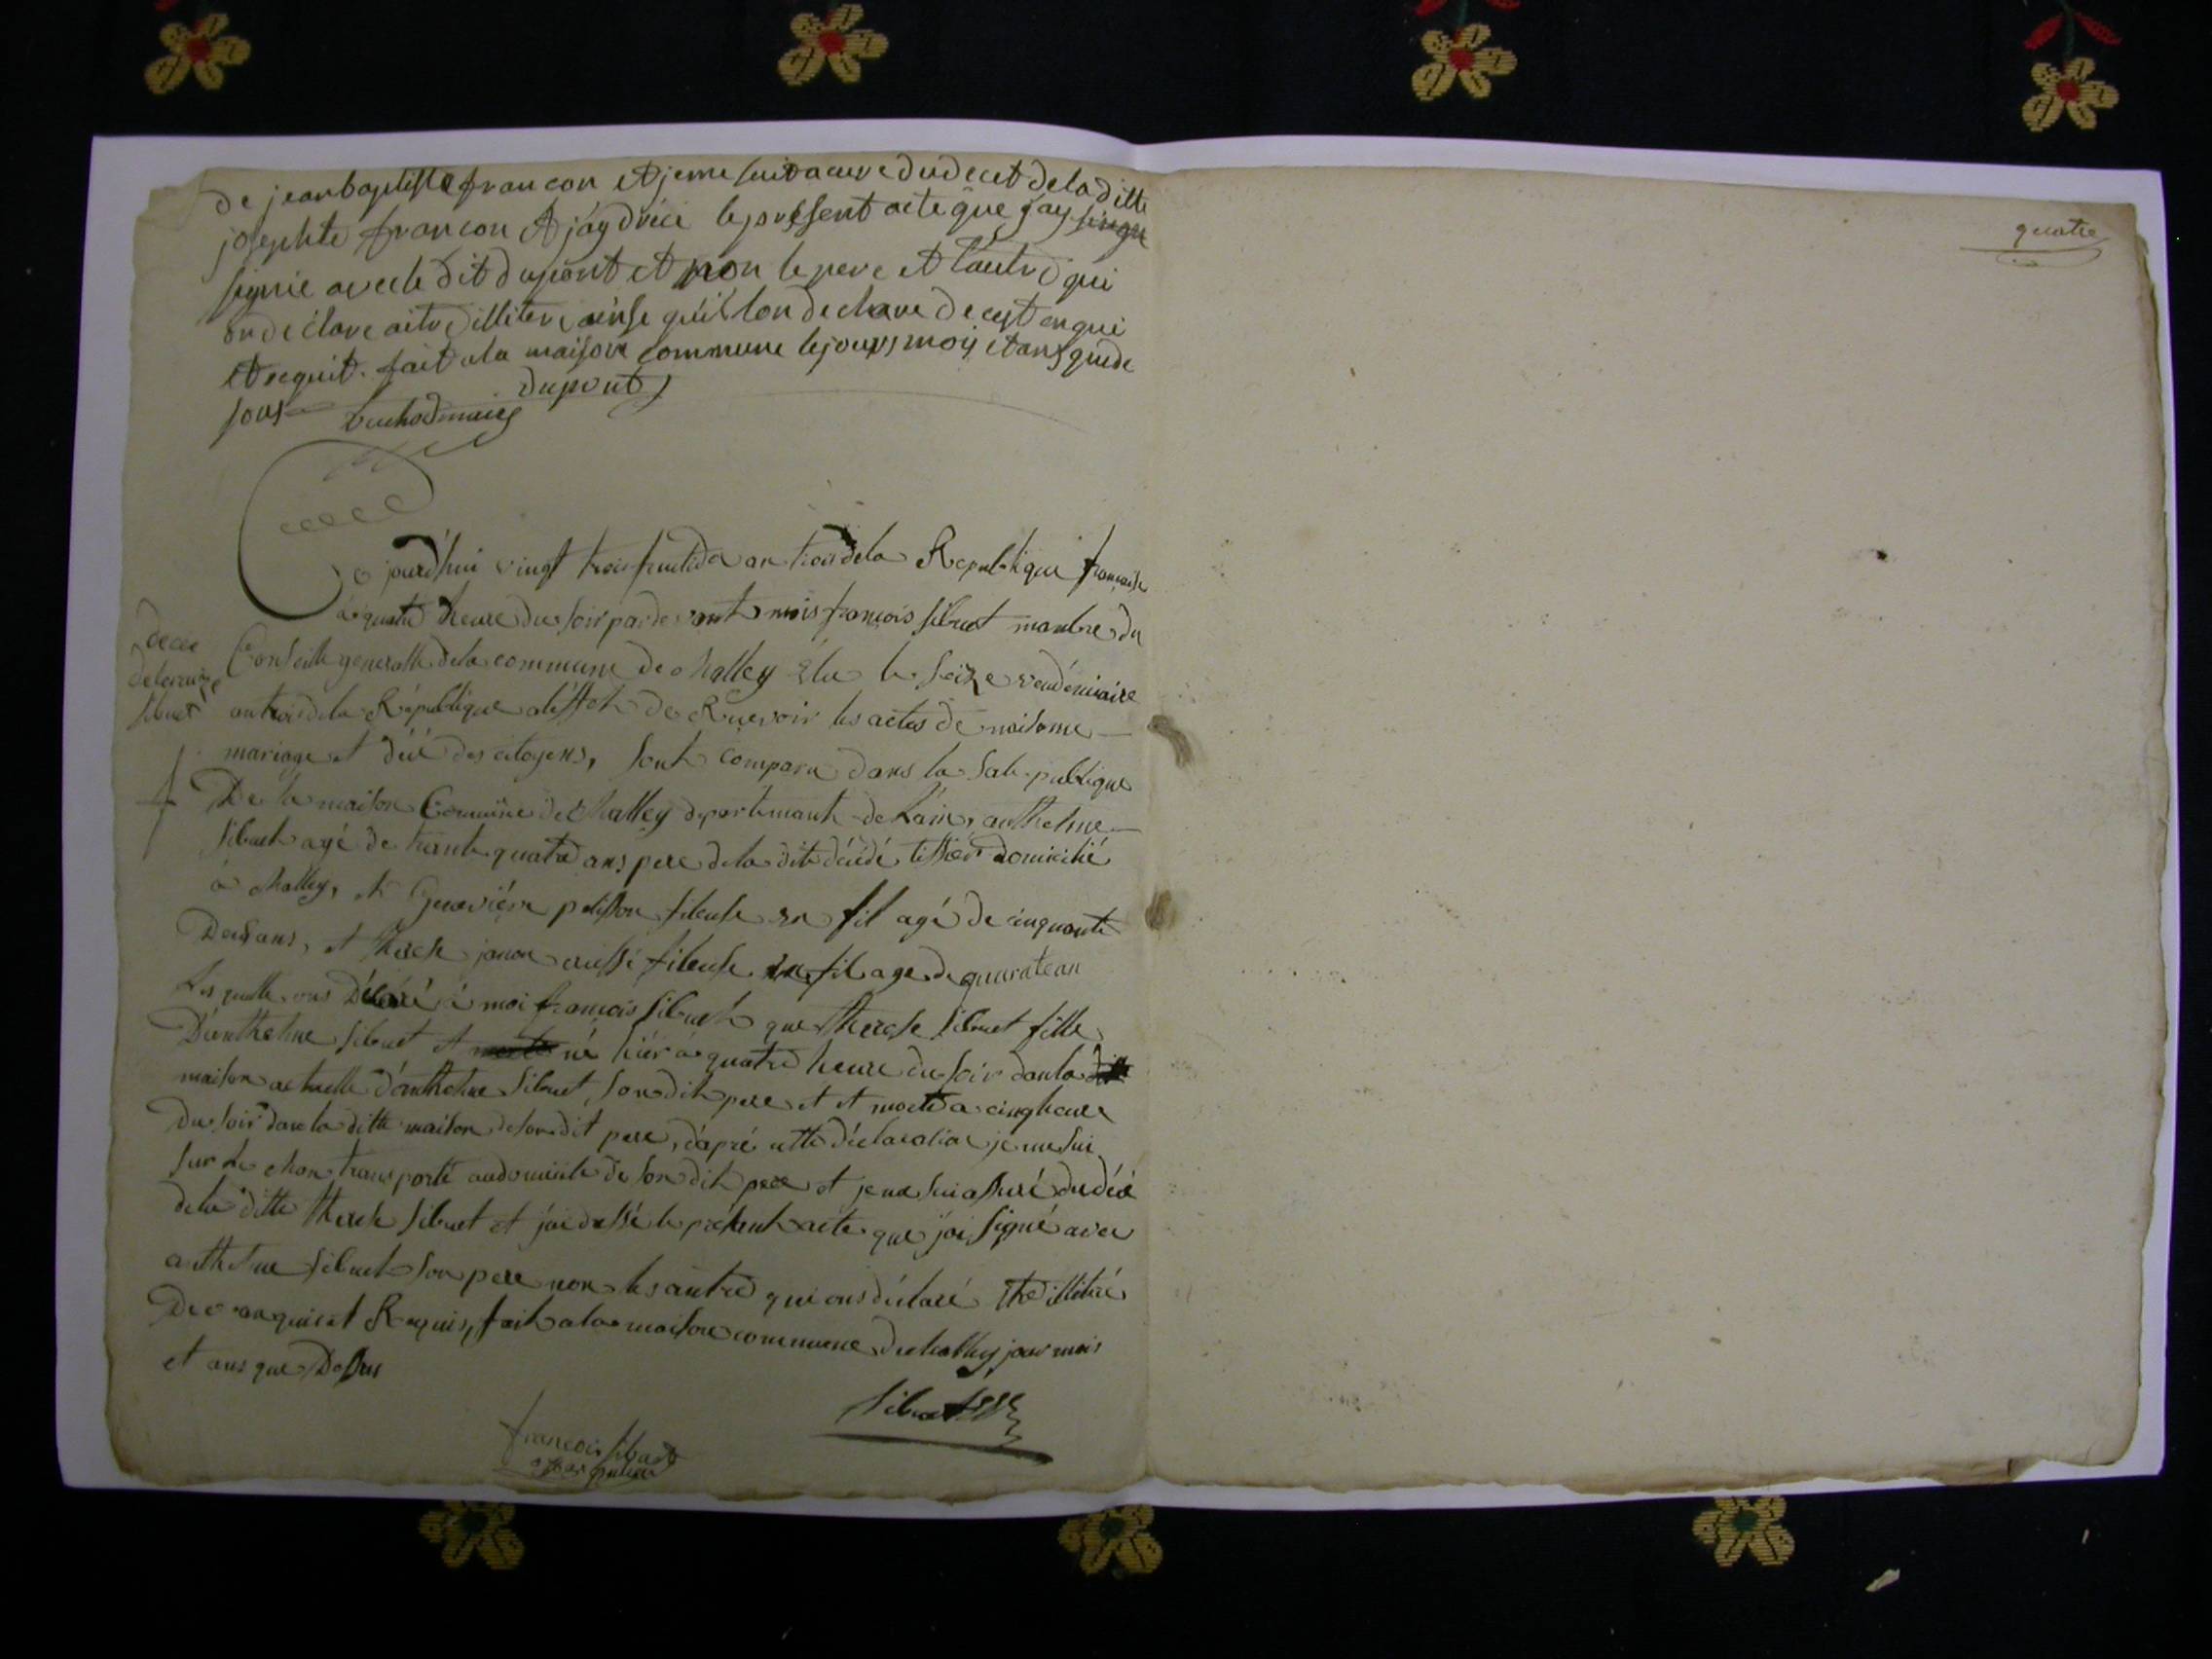 de jean baptiste francon et je me suit acure du decet de la ditte
josephte francon et jay dréci le present acte que jay
signié avec le dit dupont et non le pere et l'autre qui
on déclare aitre illitere ainse qu'il lon declare de cest enqui
et requit. fait a la maison commune le jours mois et ans que de
sous
dupont
Ce jourd'hui vingt trois fructidor an trois de la Republique françoise
à quatre heure du soir par devant moi françois sibuet manbre du
Conseille generalle de la commune de challey élu le seize vendémiaire
an trois de la République aléffet de Recevoir les actes de naisance
mariage et décé des citoyens, sont comparu dans la sale publique
De la maison Commune de Challey departemant de Lain, anthelme
sibuet agé de trante quatre ans pere de la dite décédé tissier domicilié
à challey, et Genevieve pelisson fileuse en fil agé de cinquante
Deus ans, et therese aussi fileuse en fil age de quarate an
Les quelle ons Déclaré à moi françois sibuet que therese sibuet fille
D'anthelme sibuet et né hiér à quatre heure du soir dan la
maison actuelle d'anthelme sibuet, son dit pere et et morte a cinq heure
du soir dan la ditte maison de son dit pere, d'apré cette déclaration je me sui
sur le chan transporté au domicile de son dit pere et je me sui assuré du décé
de la ditte therese sibuet et j'ai dressé le présent acte que j'ai signé avec
anthelme sibuet son pere non les autre qui ons déclaré etre illitéré
De ce enquis et Requis, fait a la maison commune de challey jour mois
et ans que Dessus
sibuet
françois sibuet
officier public
décée
de terese
sibuet
quatre